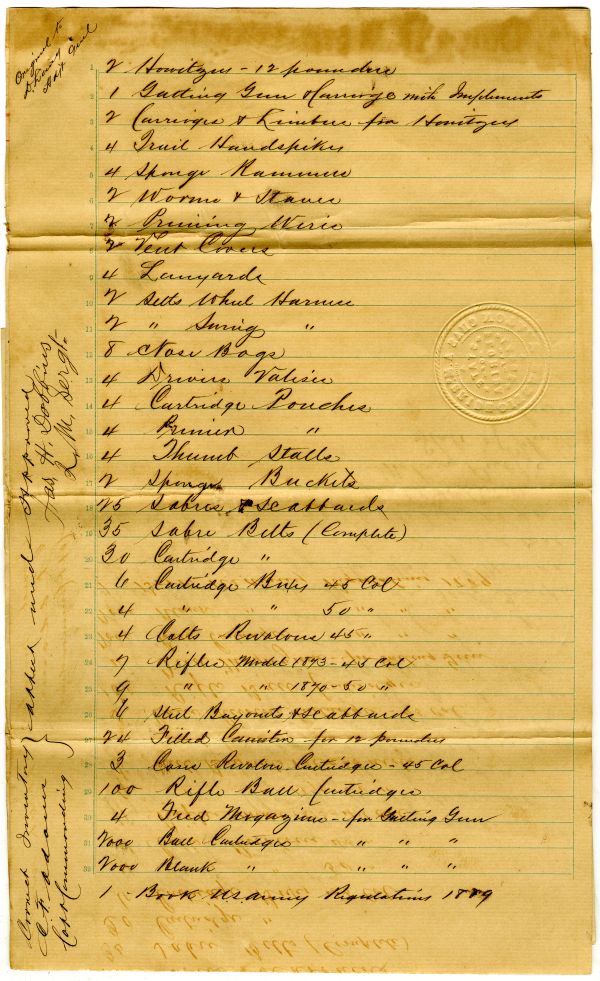 Original to
Adjt Genl
2 Howitzers - 12 pounders
1 Gatling Gun & Carriage with Implements
2 Carriages & Limbers for Howitzers
4 Trail Handspikes
4 Sponge Rammers
2 Worms & Staves
2 Priming Wires
2 Vent Covers
4 Lanyards
2 Setts Wheel Harness
2 " Swing "
8 Nose Bags
4 Drivers Valises
4 Cartridge Pouches
4 Primer "
4 Thumb Stalls
2 Sponge Buckets
25 Sabres & Scabbards
35 Sabre Belts (Complete)
30 Cartridge "
6 Cartridge Boxes 45 Col
4 " " 50 " "
4 Colts Revolvers 45 "
7 Rifles Model 1873 - 45 Col
9 " " 1870 - 50 "
6 Steel Bayonets & Scabbards
24 Filled Canister for 12 pounders
3 Cases Revolver Cartridges - 45 Col
100 Rifle Ball Cartridges
4 Feed Magazines - for Gatling Gun
2000 Ball Cartridges " " "
2000 Blank " " " "
1 Book US Army Regulations 1889
Correct Inventory
C F Adams
Capt Commanding
and approved
Jas. H. Dobbins
Q. M. Sergt.